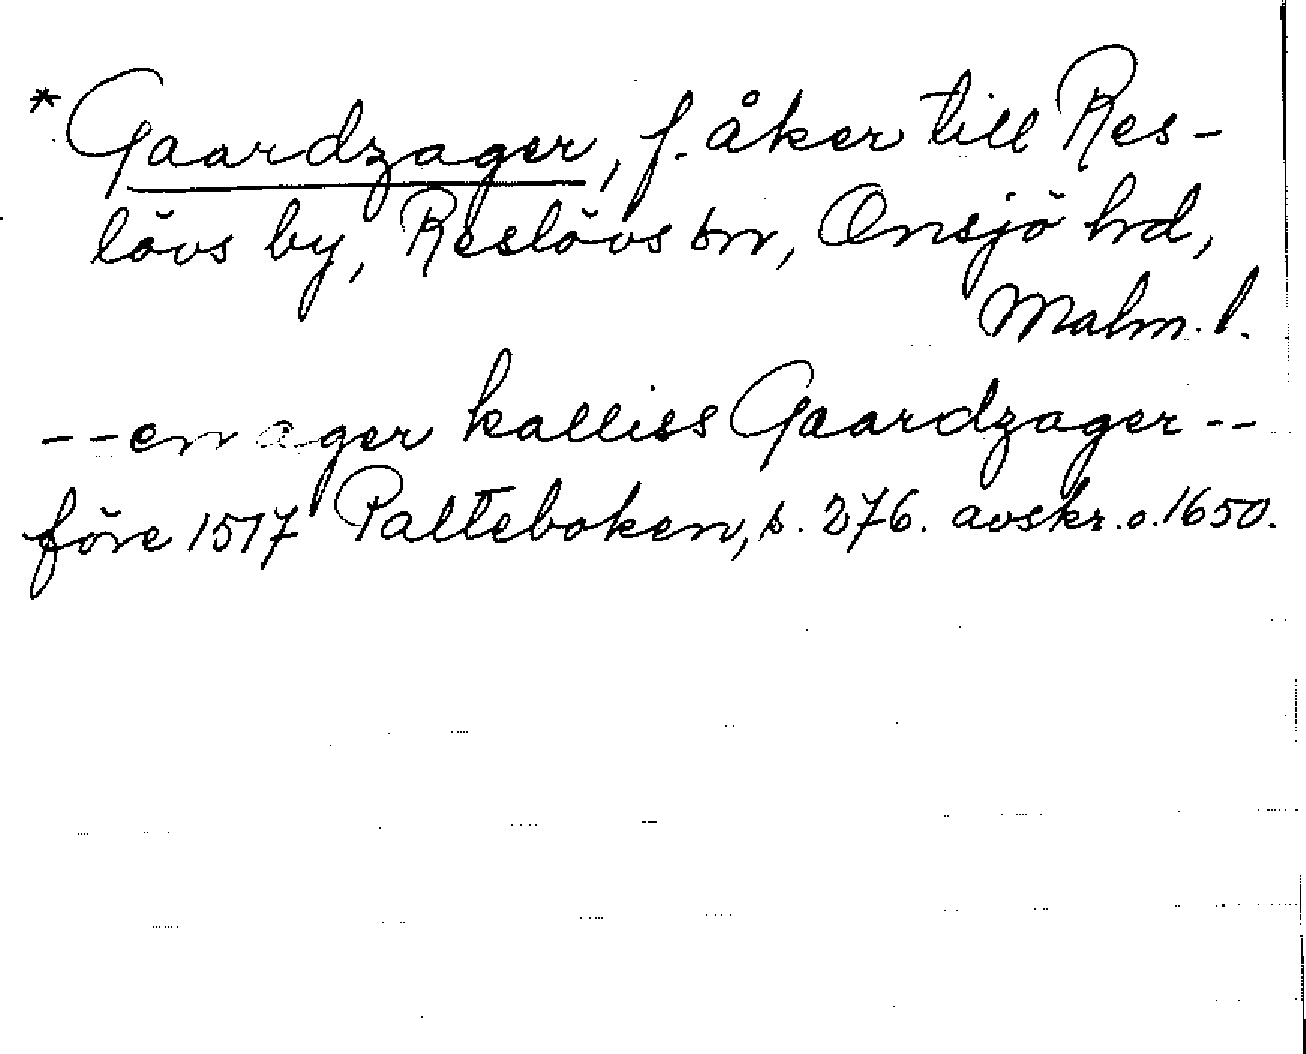 *Gaardzager, f. åker till Res-
lövs by, Reslövs sn, Onsjö hd,
Malm. l.
--en ager kalliss Gaardzager--
före 1517 Palteboken, s. 276. avskr. o. 1650.